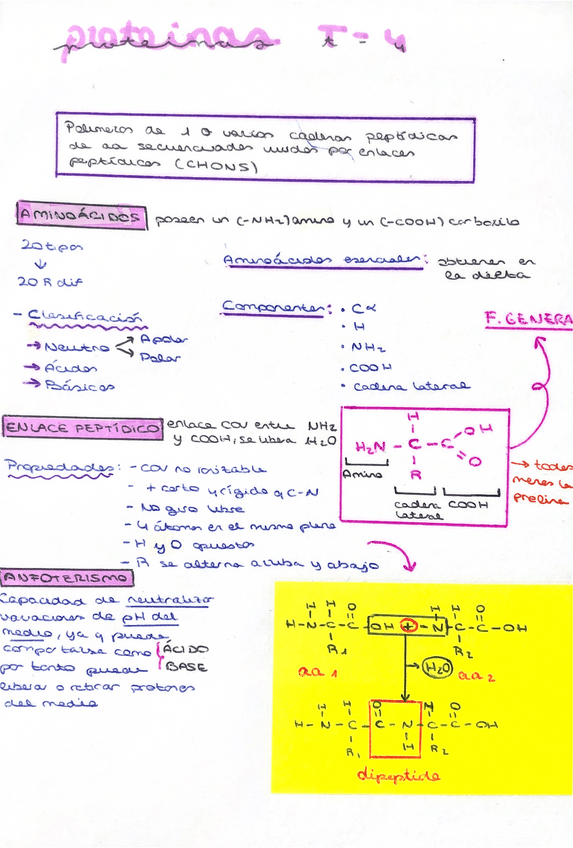 proteinas T-4
proteinas t-4
Polimeros de 1 o varias cadenas peptídicas
de aa secuenciados unidos por enlaces
peptídicos (CHONS)
AMINOÁCIDOS poseen un (-NH2) amino y un (-COOH) carboxilo
20 tipos
↓
20 R dif
Aminoácidos esenciales: obtienen en
la dieta
- Clasificación
→ Neutro
Apolar
Polar
→ Ácidos
→ Básicos
Componentes: • Cα
• H
• NH2
• COOH
• cadena lateral
F. GENERA
H
H2N - C - C
OH
O
R
Amino
cadena
lateral
COOH
→ todos
menos la
prolina
ENLACE PEPTÍDICO enlace cov entre NH2
y COOH, se libera H2O
Propiedades: - cov no ionizable
- + corto y rígido q C-N
- No giro libre
- 4 átomos en el mismo plano
- H y O opuestos
- R se alterna arriba y abajo
ANFOTERISMO
Capacidad de neutralizar
variaciones de pH del
medio, ya q puede
comportarse como ÁCIDO
BASE
por tanto puede
liberar o retirar protones
del medio
H H O H H O
H-N-C-C-OH + -N-C-C-OH
R1 R2
aa 1 H2O aa 2
H H O H O
H-N-C-C-N-C-C-OH
R1 H R2
dipeptido